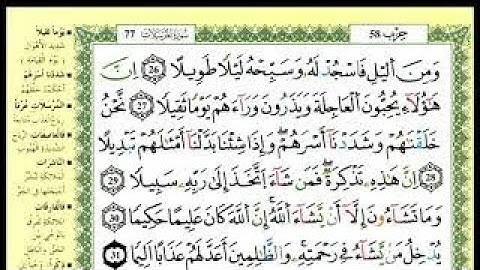 حِزْب 58
سُورَةُ الْمُرْسَلَات 77
وَمِنَ ٱلَّيْلِ فَٱسْجُدْ لَهُۥ وَسَبِّحْهُ لَيْلًا طَوِيلًا ۝26 إِنَّ
هَٰٓؤُلَآءِ يُحِبُّونَ ٱلْعَاجِلَةَ وَيَذَرُونَ وَرَآءَهُمْ يَوْمًا ثَقِيلًا ۝27 نَّحْنُ
خَلَقْنَٰهُمْ وَشَدَدْنَآ أَسْرَهُمْ وَإِذَا شِئْنَا بَدَّلْنَآ أَمْثَٰلَهُمْ تَبْدِيلًا
۝28 إِنَّ هَٰذِهِۦ تَذْكِرَةٌ فَمَن شَآءَ ٱتَّخَذَ إِلَىٰ رَبِّهِۦ سَبِيلًا ۝29
وَمَا تَشَآءُونَ إِلَّآ أَن يَشَآءَ ٱللَّهُ إِنَّ ٱللَّهَ كَانَ عَلِيمًا حَكِيمًا ۝30
يُدْخِلُ مَن يَشَآءُ فِى رَحْمَتِهِۦ وَٱلظَّٰلِمِينَ أَعَدَّ لَهُمْ عَذَابًا أَلِيمًۢا ۝31
يَوْمًا ثَقِيلًا
شديد الأهوال
(يوم القيامة)
شَدَدْنَا أَسْرَهُمْ
أحكمنا خلقهم